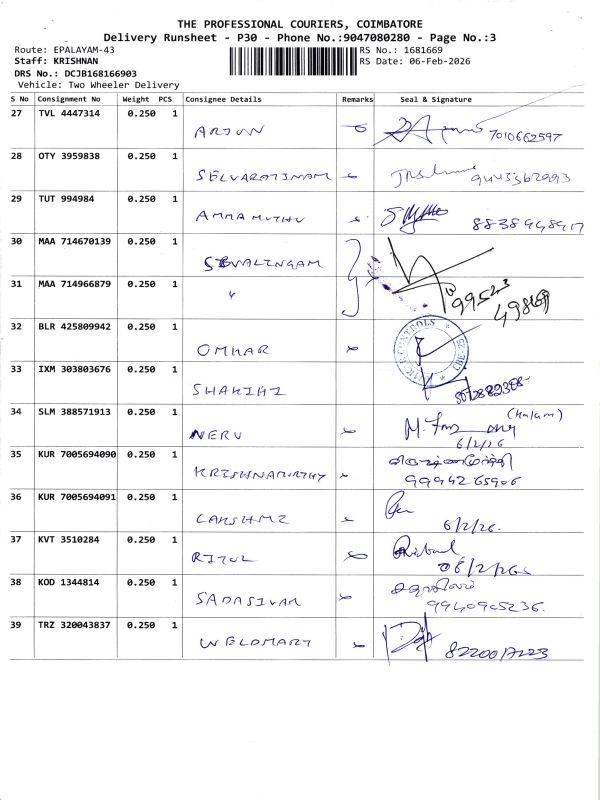 THE PROFESSIONAL COURIERS, COIMBATORE
Delivery Runsheet - P30 - Phone No.:9047080280 - Page No.:3
Route: EPALAYAM-43
RS No.: 1681669
Staff: KRISHNAN
RS Date: 06-Feb-2026
DRS No.: DCJB168166903
Vehicle: Two Wheeler Delivery
S No Consignment No Weight PCS Consignee Details Remarks Seal & Signature
27 TVL 4447314 0.250 1
ARJUN 7010662597
28 OTY 3959838 0.250 1
SELVARATINAM
29 TUT 994984 0.250 1
AMMAMUTHU 8838948917
30 MAA 714670139 0.250 1
SIVALINGAM
31 MAA 714966879 0.250 1
"
32 BLR 425809942 0.250 1
OMKAR
33 IXM 303803676 0.250 1
SHAKTHI
34 SLM 388571913 0.250 1
(Kalam)
NERU
6/2/26
35 KUR 7005694090 0.250 1
KRISHNAMURTHY 9994265906
36 KUR 7005694091 0.250 1
LAKSHMI
6/2/26.
37 KVT 3510284 0.250 1
06/2/26
38 KOD 1344814 0.250 1
SADASIVAM
9940905236.
39 TRZ 320043837 0.250 1
WELDMART
8220017223